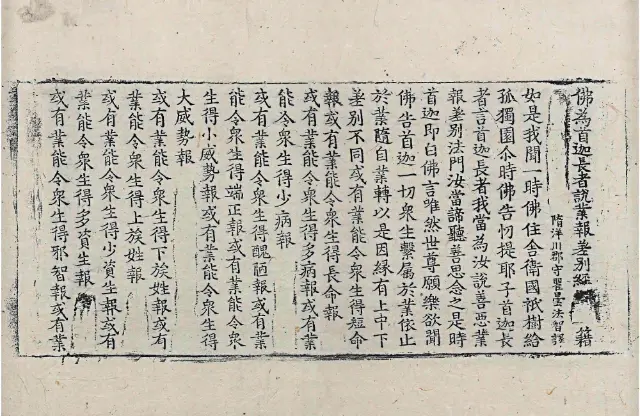 佛為首迦長者說業報差別經 籍
隋洋川郡守瞿曇法智譯
如是我聞一時佛住舍衛國祇樹給
孤獨園尒時佛告忉提耶子首迦長
者言首迦長者我當為汝說善惡業
報差別法門汝當諦聽善思念之是時
首迦即白佛言唯然世尊願樂欲聞
佛告首迦一切衆生繫屬於業依止
於業隨自業轉以是因緣有上中下
差別不同或有業能令衆生得短命
報或有業能令衆生得長命報
或有業能令衆生得多病報或有業
能令衆生得少病報
或有業能令衆生得醜陋報或有業
能令衆生得端正報或有業能令衆
生得小威勢報或有業能令衆生得
大威勢報
或有業能令衆生得下族姓報或有
業能令衆生得上族姓報
或有業能令衆生得少資生報或有
業能令衆生得多資生報
或有業能令衆生得邪智報或有業